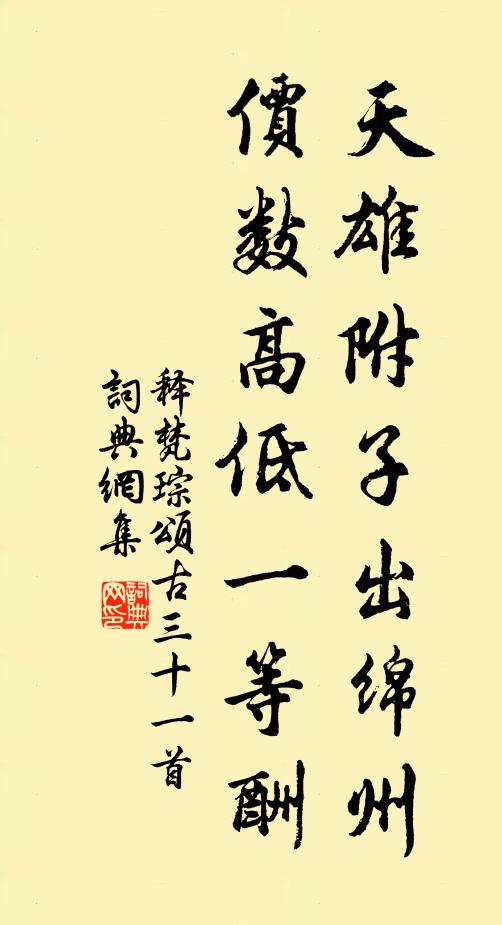 天雄附子出绵州
價數高低一等酬
释梵琮頌古三十一首
詞典網集
詞典网印